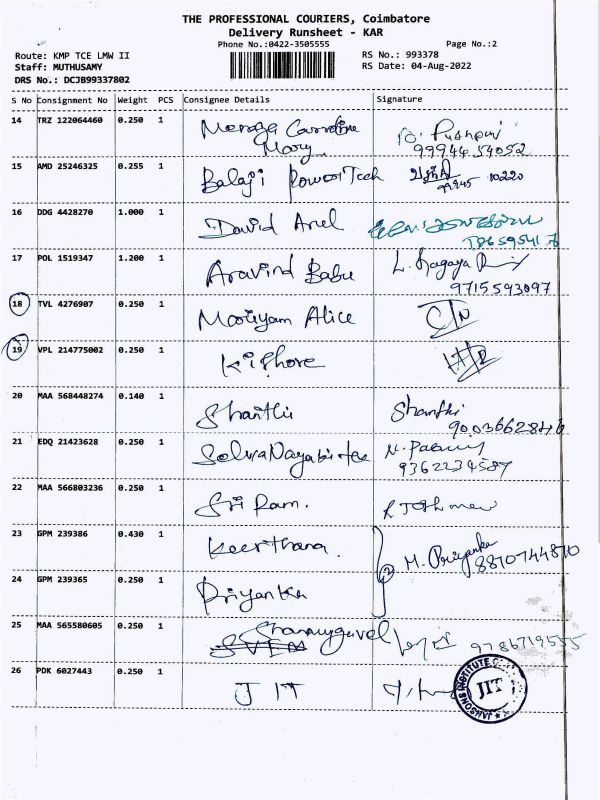 THE PROFESSIONAL COURIERS, Coimbatore
Delivery Runsheet - KAR
Phone No.:0422-3505555
Page No.:2
Route: KMP TCE LMW II
RS No.: 993378
Staff: MUTHUSAMY
RS Date: 04-Aug-2022
DRS No.: DCJB99337802
S No Consignment No Weight PCS Consignee Details Signature
14 TRZ 122064460 0.250 1 Caroline
Mary 99944 54052
15 AMD 25246325 0.255 1 Balaji PowerTech 99945 10220
16 DDG 4428270 1.000 1 David Arul
17 POL 1519347 1.200 1 Aravind Babu L.
9715593097
18 TVL 4276907 0.250 1 Alice
19 VPL 214775002 0.250 1 Kishore
20 MAA 568448274 0.140 1 Shanthi Shanthi
9003662846
21 EDQ 21423628 0.250 1 N.
9362234587
22 MAA 566803236 0.250 1 Sri Ram.
23 GPM 239386 0.430 1 Keerthana. M. Priyanka
8870744870
24 GPM 239365 0.250 1 Priyanka
25 MAA 565580605 0.250 1 Shanmugavel 9786719555
26 PDK 6027443 0.250 1 JIT
JANSONS INSTITUTE
JIT